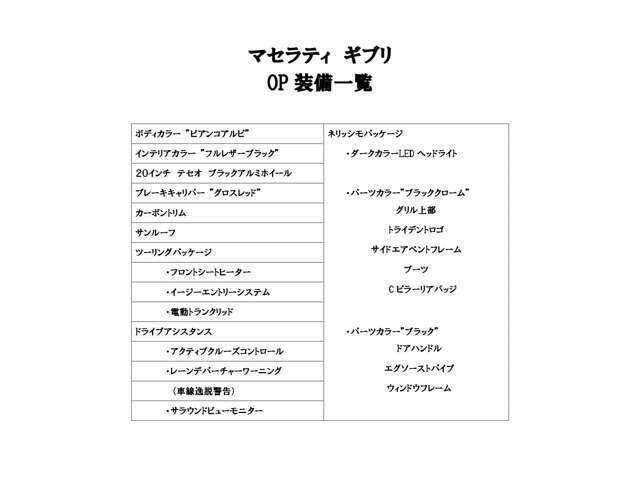 マセラティ ギブリ
OP 装備一覧
ボディカラー "ビアンコアルピ"
インテリアカラー "フルレザーブラック"
20インチ テセオ ブラックアルミホイール
ブレーキキャリパー "グロスレッド"
カーボントリム
サンルーフ
ツーリングパッケージ
・フロントシートヒーター
・イージーエントリーシステム
・電動トランクリッド
ドライブアシスタンス
・アクティブクルーズコントロール
・レーンデパーチャーワーニング
（車線逸脱警告）
・サラウンドビューモニター
ネリッシモパッケージ
・ダークカラーLED ヘッドライト
・パーツカラー"ブラッククローム"
グリル上部
トライデントロゴ
サイドエアベントフレーム
ブーツ
C ピラーリアバッジ
・パーツカラー"ブラック"
ドアハンドル
エグゾーストパイプ
ウィンドウフレーム